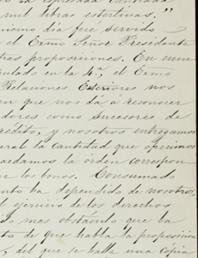 la expresada cantidad
mil libras esterlinas."
mismo dia que servido
el Exmo Señor Presidente
tras proposiciones. En cum
pulado en la 4ª, el Exmo
Relaciones Exteriores nos
en que nos dá á reconocer
dores como sucesores de
rédito, y nosotros entregamos
eral la cantidad que
acdamos la orden correspon
los bonos. Consumado
nto ha dependido de nosotros,
el ejercicio de los derechos
mas obstáculo que ha
ta de que habla la proposicion
, del que se halla una cópia